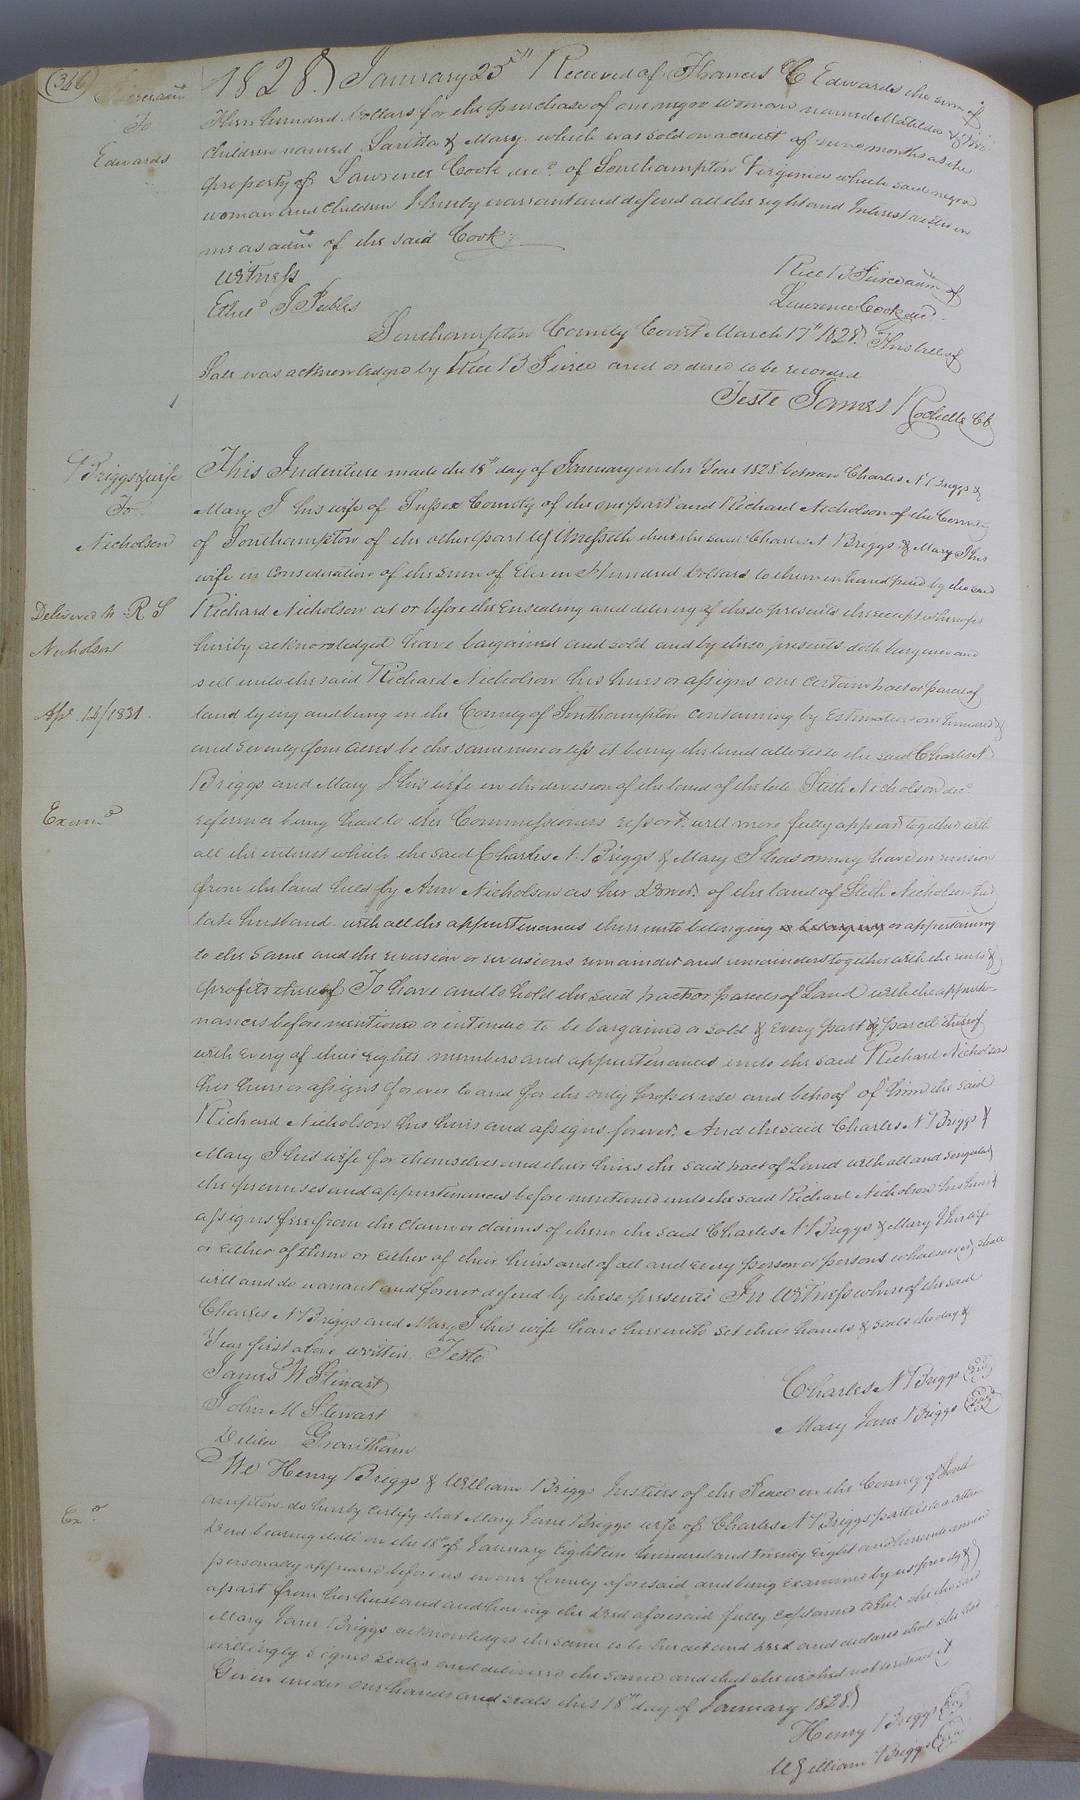 (346)
To
Edwards
1828.) January 25th Received of Thomas C Edwards the sum of
Three hundred Dollars for the purchase of one negro woman named Matilda & two
Children named Laritta & Mary. which was sold on a credit of nine months as the
property of Lawrence Cook decd. of Southampton Virginia which said negro
woman and children I hereby warrant and defend all the right and Interest vested in
me as admr. of the said Cook
Witness
Rice B Pierce admr. of
Ethd. J Peebles
Lawrence Cook decd.
Southampton County Court March 17th 1828) This bill of
Sale was acknowledged by Rice B Pierce and ordered to be recorded
Teste James Rochelle Ck
Briggs & wife
To
Nicholson
Delivered to R S
Nicholson
Apr. 14/1831.
Examd.
This Indenture made the 18th day of January in the Year 1828 between Charles N Briggs &
Mary J his wife of Sussex County of the one part and Richard Nicholson of the County
of Southampton of the other part Witnesseth that the said Charles N Briggs & Mary J his
wife in Consideration of the sum of Eleven Hundred Dollars to them in hand paid by the said
Richard Nicholson at or before the Ensealing and delivery of these presents the receipt whereof is
hereby acknowledged have bargained and sold and by these presents doth bargain and
sell unto the said Richard Nicholson his heirs or assigns one certain tract or parcel of
land lying and being in the County of Southampton containing by Estimation one hundred
and Seventy four acres be the same more or less it being the land allotted to the said Charles N
Briggs and Mary J his wife in the division of the land of the late Nicholson decd.
reference being had to the Commissioners report. will more fully appear together with
all the interest which the said Charles N. Briggs & Mary J has or may have in reversion
from the land held by Ann Nicholson as her Dower. of the land of Nicholson her
late husband. with all the appurtenances there unto belonging or belonging or appertaining
to the same and the reversion or reversions remainder and remainders together with the rents &
profits thereof To have and to hold the said tract or parcel of Land with the appurte-
nances before mentioned or intended to be bargained or sold & every part & parcel thereof
with every of their rights members and appurtenances unto the said Richard Nicholson
his heirs or assigns forever to and for the only proper use and behoof of him the said
Richard Nicholson his heirs and assigns forever. And the said Charles N Briggs &
Mary J his wife for themselves and their heirs the said tract of Land with all and singular
the premises and appurtenances before mentioned unto the said Richard Nicholson his heirs &
assigns free from the claim or claims of them the said Charles N Briggs & Mary J his wife
or either of them or either of their heirs and of all and every person or persons whatsoever shall
will and do warrant and forever defend by these presents In Witness whereof the said
Charles N Briggs and Mary J his wife have hereunto set their hands & seals the day &
Year first above written. Teste
James W Stewart
Charles N Briggs
John M Stewart
Mary Jane Briggs
Grantham
Exd.
We Henry Briggs & William Briggs Justices of the Peace in the County of South
ampton do hereby certify that Mary Jane Briggs wife of Charles N Briggs parties to a certain
Deed bearing date on the 18th of January Eighteen hundred and twenty Eight and hereunto annexed
personally appeared before us in our County aforesaid and being examined by us privily &
apart from her husband and having the Deed aforesaid fully explained to her she the said
Mary Jane Briggs acknowledged the same to be her act and Deed and declared that she had
willingly signed sealed and delivered the same and that she wished not to retract it
Given under our hands and seals this 18th day of January 1828.)
Henry Briggs
William Briggs